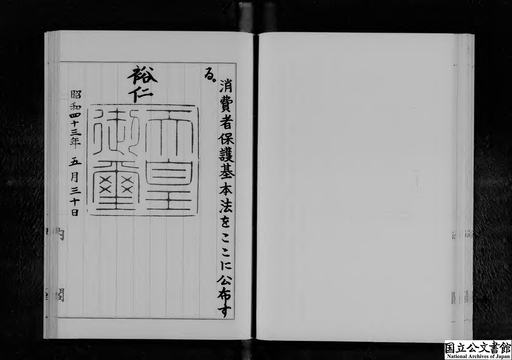 消費者保護基本法をここに公布す
る。
裕仁
天皇
御璽
昭和四十三年五月三十日
内閣
国立公文書館
National Archives of Japan